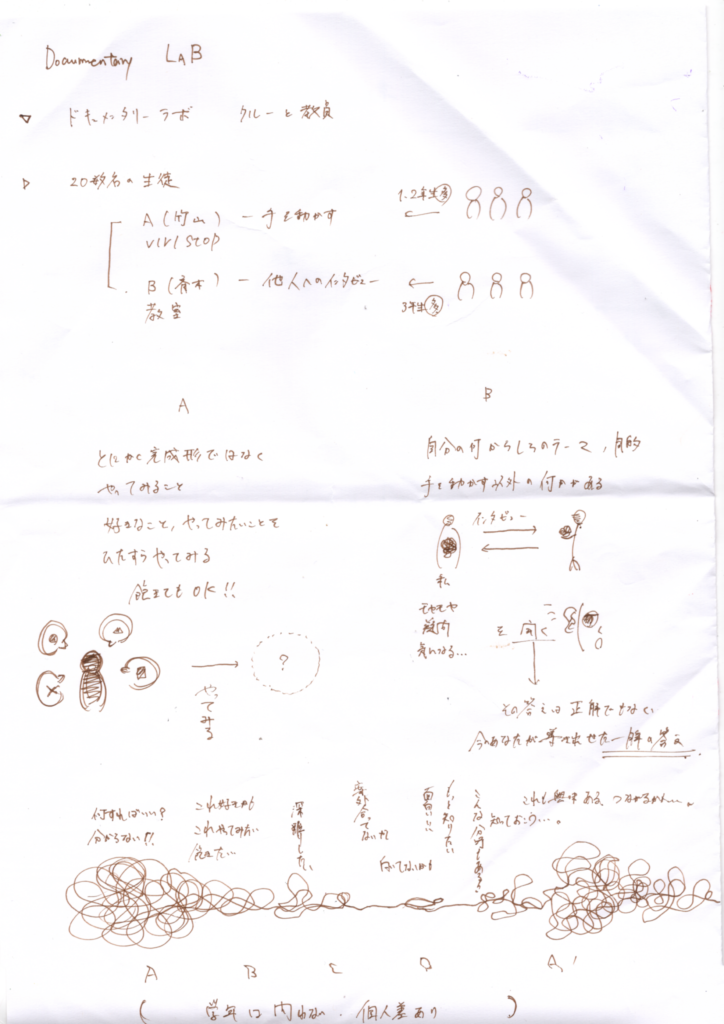 Documentary LAB
ドキュメンタリーラボ クルーと教員
20数名の生徒
A (竹山) ー 手を動かす
VIVISTOP
1.2年生 多
B (青木) ー 他人へのインタビュー
教室
3年生 多
A
B
とにかく完成形ではなく
やってみること
好きなこと, やってみたいことを
ひたすらやってみる
飽きてもOK!!
自分の何かしらのテーマ, 目的
手を動かす以外の何かがある
インタビュー
私
モヤモヤ
疑問
気になる...
を聞く
?
やってみる
その答えは正解でもなく
今のあなたが導き出せた一解の答え
何すればいい?
分からない!!
これ好きかも
これやってみたい
飽きた...
深掘したい
面白い
もっと知りたい
こんな分野もある!
これも興味ある、つながるかも...。
知っておこう...。
A B C D A'
( 学年は問わない. 個人差あり )